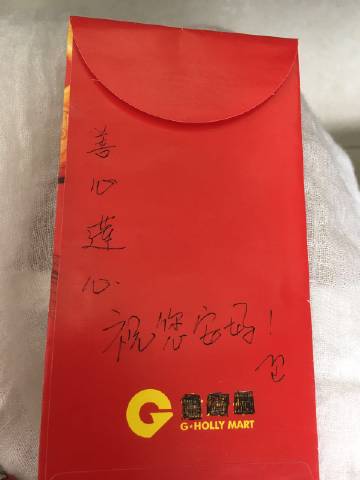 善心蓮心
祝您安好!
G
G·HOLLY MART